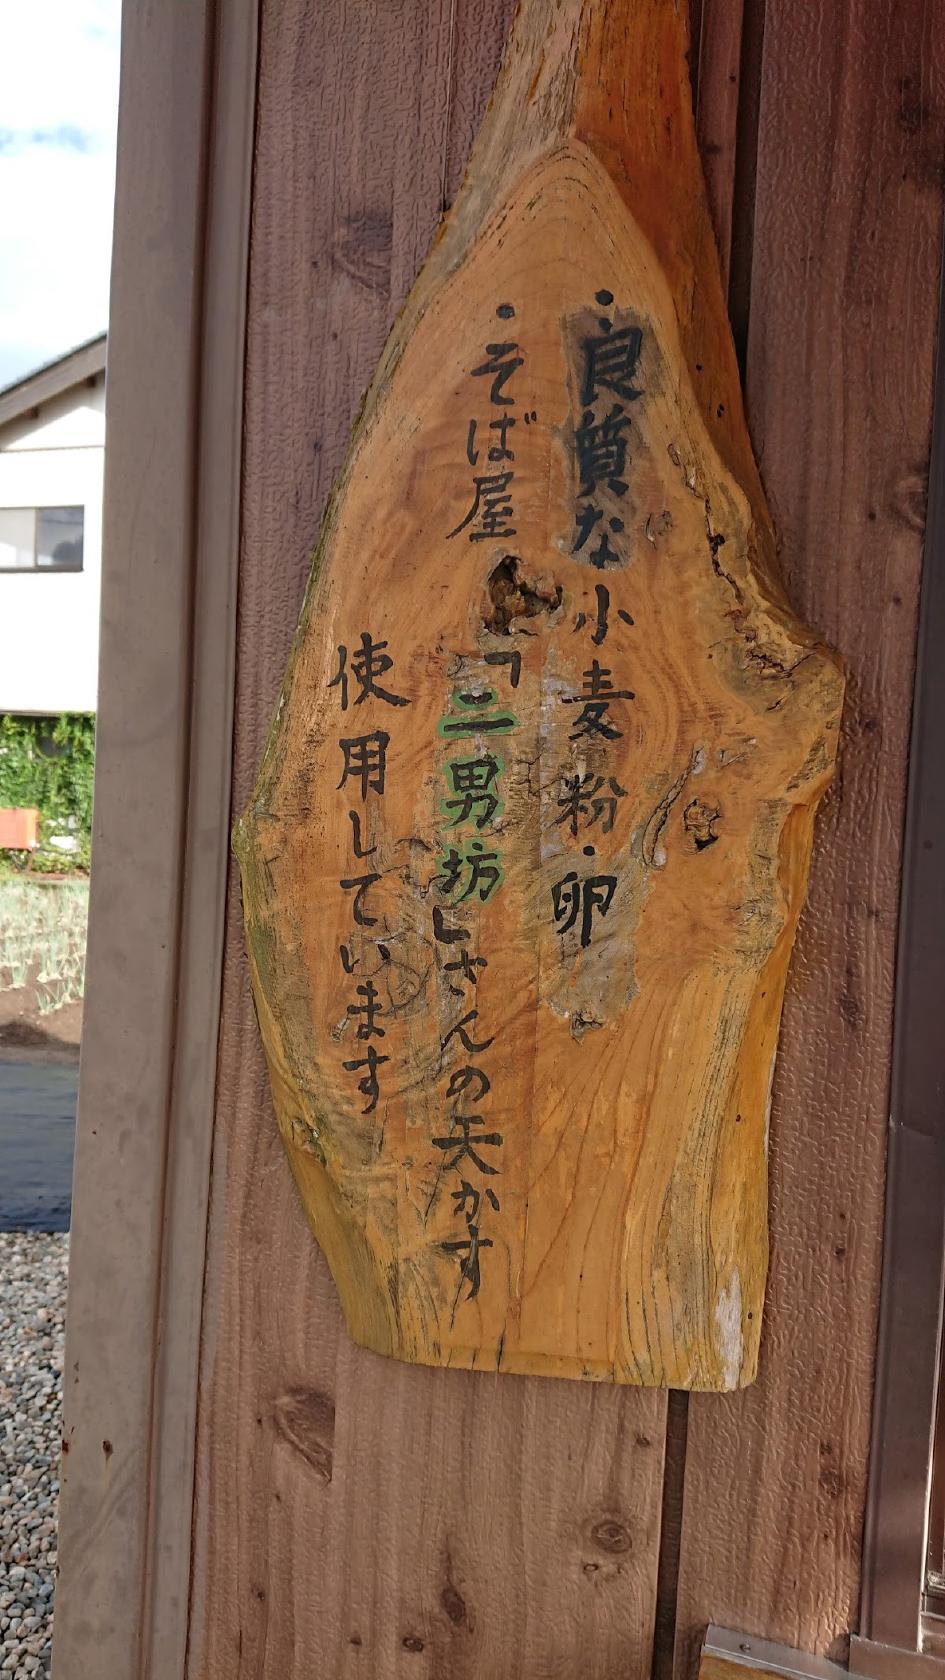 ・良質な小麦粉・卵
・そば屋「二男坊」さんの天かす
使用しています